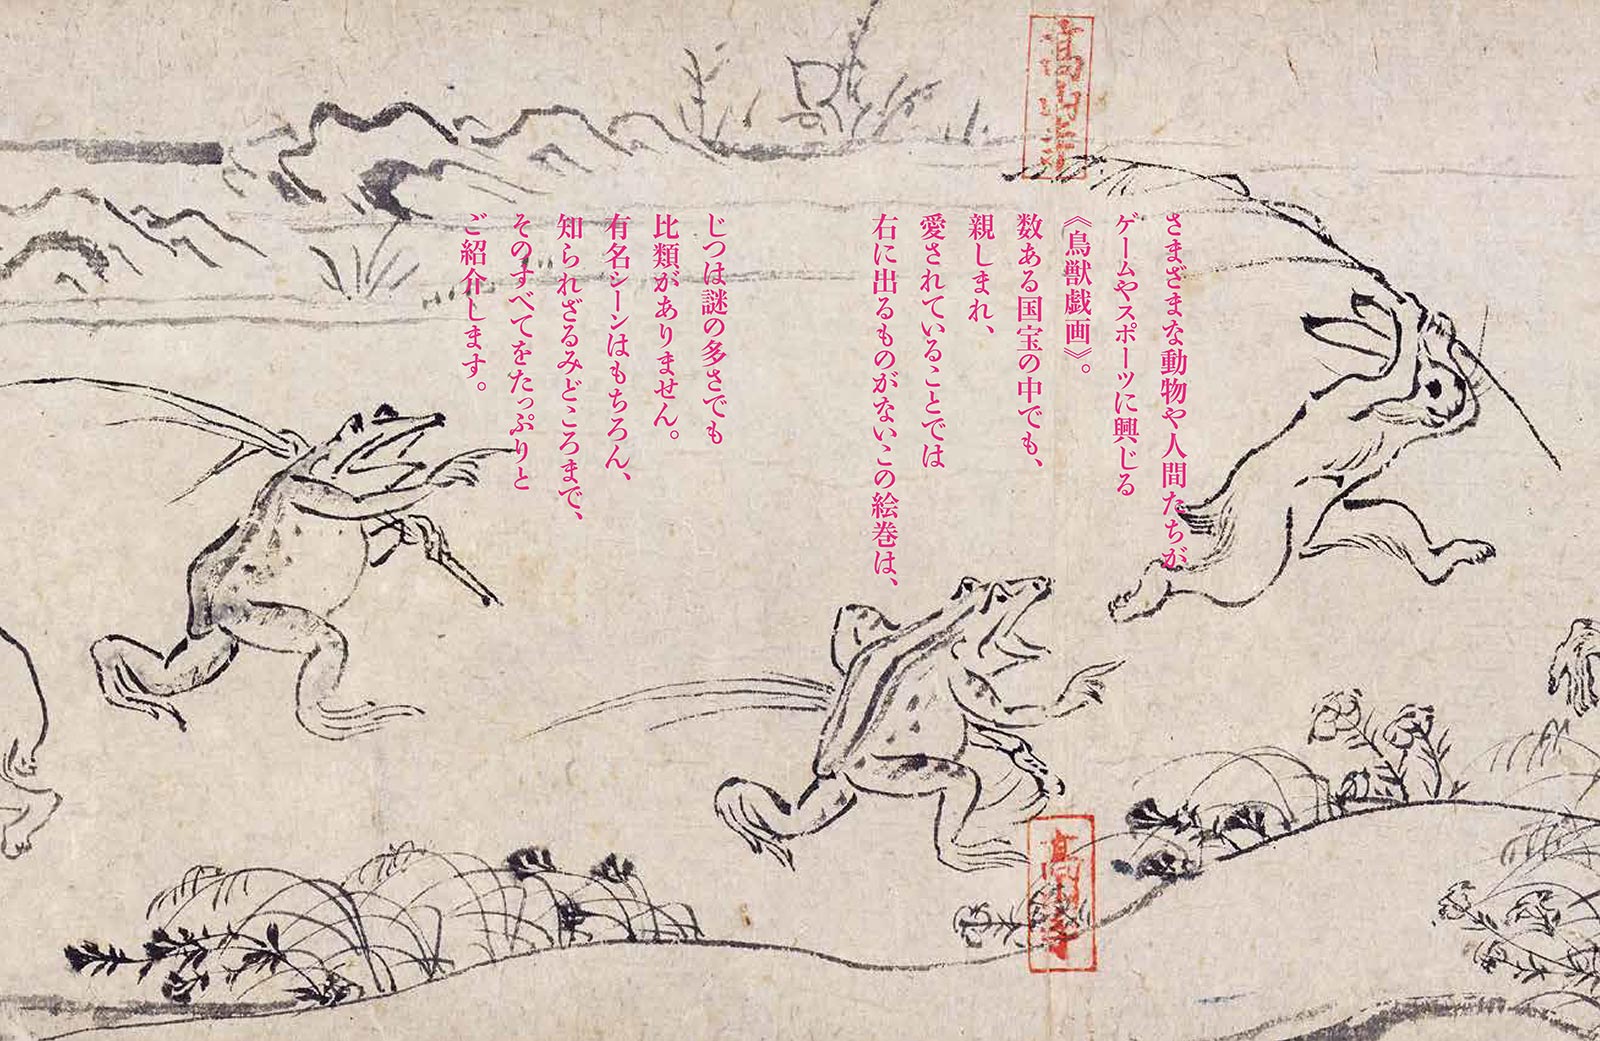 さまざまな動物や人間たちが
ゲームやスポーツに興じる
《鳥獣戯画》。
数ある国宝の中でも、
親しまれ、
愛されていることでは
右に出るものがないこの絵巻は、
じつは謎の多さでも
比類がありません。
有名シーンはもちろん、
知られざるみどころまで、
そのすべてをたっぷりと
ご紹介します。
高山寺
高山寺